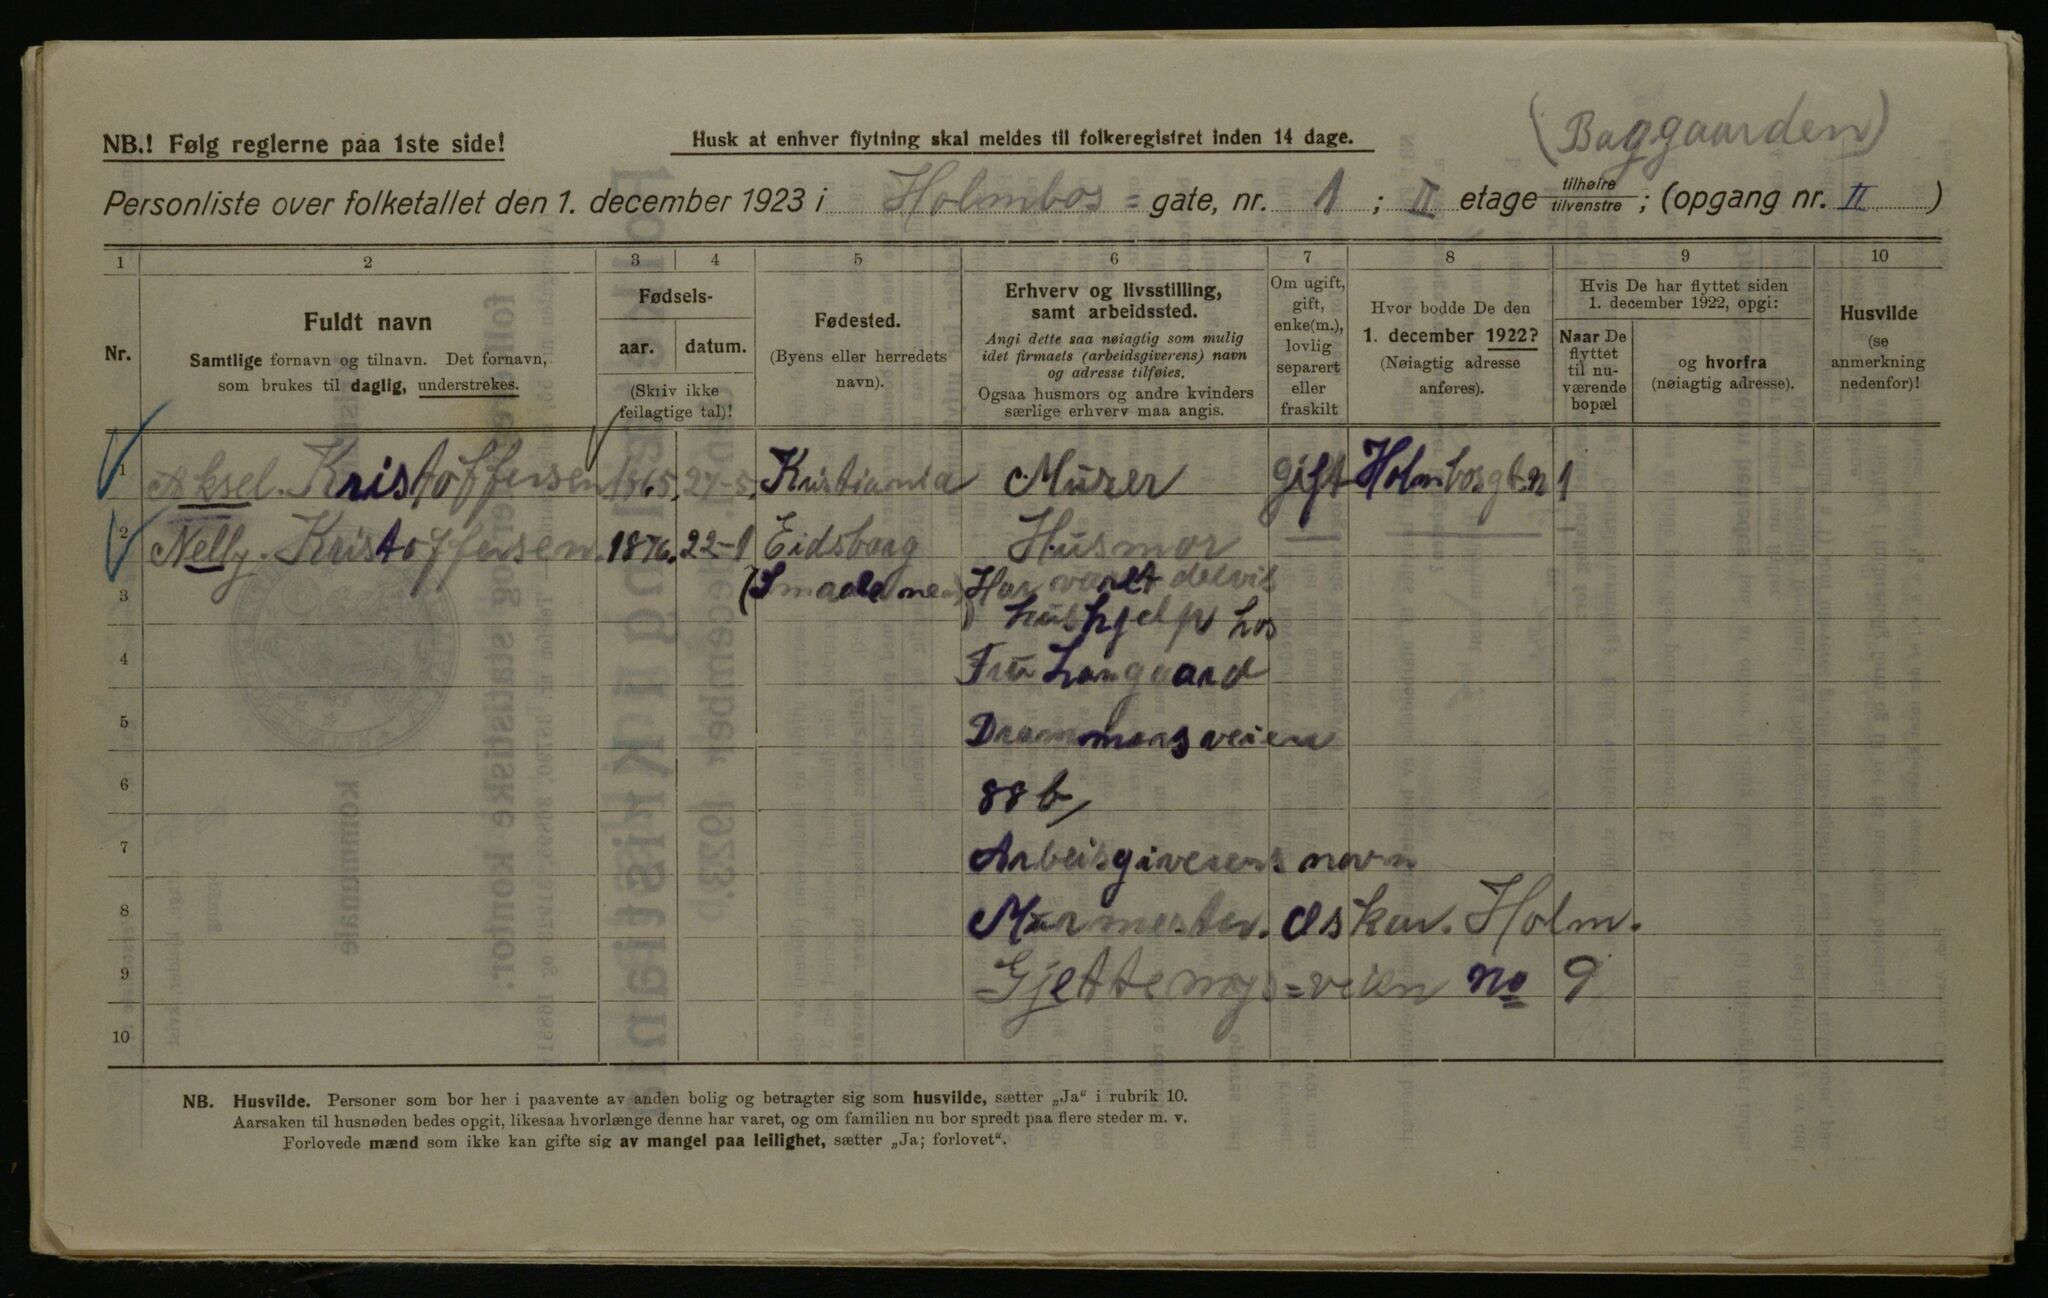 (Baggaarden)
NB.! Følg reglerne paa 1ste side!
Husk at enhver flytning skal meldes til folkeregistret inden 14 dage.
Personliste over folketallet den 1. december 1923 i Holmbos = gate, nr. 1 ; II etage tilhøire tilvenstre ; (opgang nr. II )
1 2 3 4 5 6 7 8 9 10
Nr.
Fuldt navn
Samtlige fornavn og tilnavn. Det fornavn,
som brukes til daglig, understrekes.
Fødsels-
aar. datum.
(Skriv ikke
feilagtige tal)!
Fødested.
(Byens eller herredets
navn).
Erhverv og livsstilling,
samt arbeidssted.
Angi dette saa nøiagtig som mulig
idet firmaets (arbeidsgiverens) navn
og adresse tilføies.
Ogsaa husmors og andre kvinders
særlige erhverv maa angis.
Om ugift,
gift,
enke(m.),
lovlig
separert
eller
fraskilt
Hvor bodde De den
1. december 1922?
(Nøiagtig adresse
anføres).
Hvis De har flyttet siden
1. december 1922, opgi:
Naar De
flyttet
til nu-
værende
bopæl
og hvorfra
(nøiagtig adresse).
Husvilde
(se
anmerkning
nedenfor)!
1 Aksel. Kristoffersen 1865. 27-5. Kristiania Murer gift Holmbosgt. n 1
2 Nelly. Kristoffersen. 1876. 22-1 Eidsberg Husmor — —— 1
3 (Smaalenene) Har vært delvis
hushjelp hos
4 Fru Langaard
5 Drammensveien
6 88 b/
7 Arbeisgiverens navn
8 Murmester. Oskar. Holm.
9 Gjettemys=veien no 9
10
NB. Husvilde. Personer som bor her i paavente av anden bolig og betragter sig som husvilde, sætter „Ja“ i rubrik 10.
Aarsaken til husnøden bedes opgit, likesaa hvorlænge denne har varet, og om familien nu bor spredt paa flere steder m. v.
Forlovede mænd som ikke kan gifte sig av mangel paa leilighet, sætter „Ja; forlovet“.